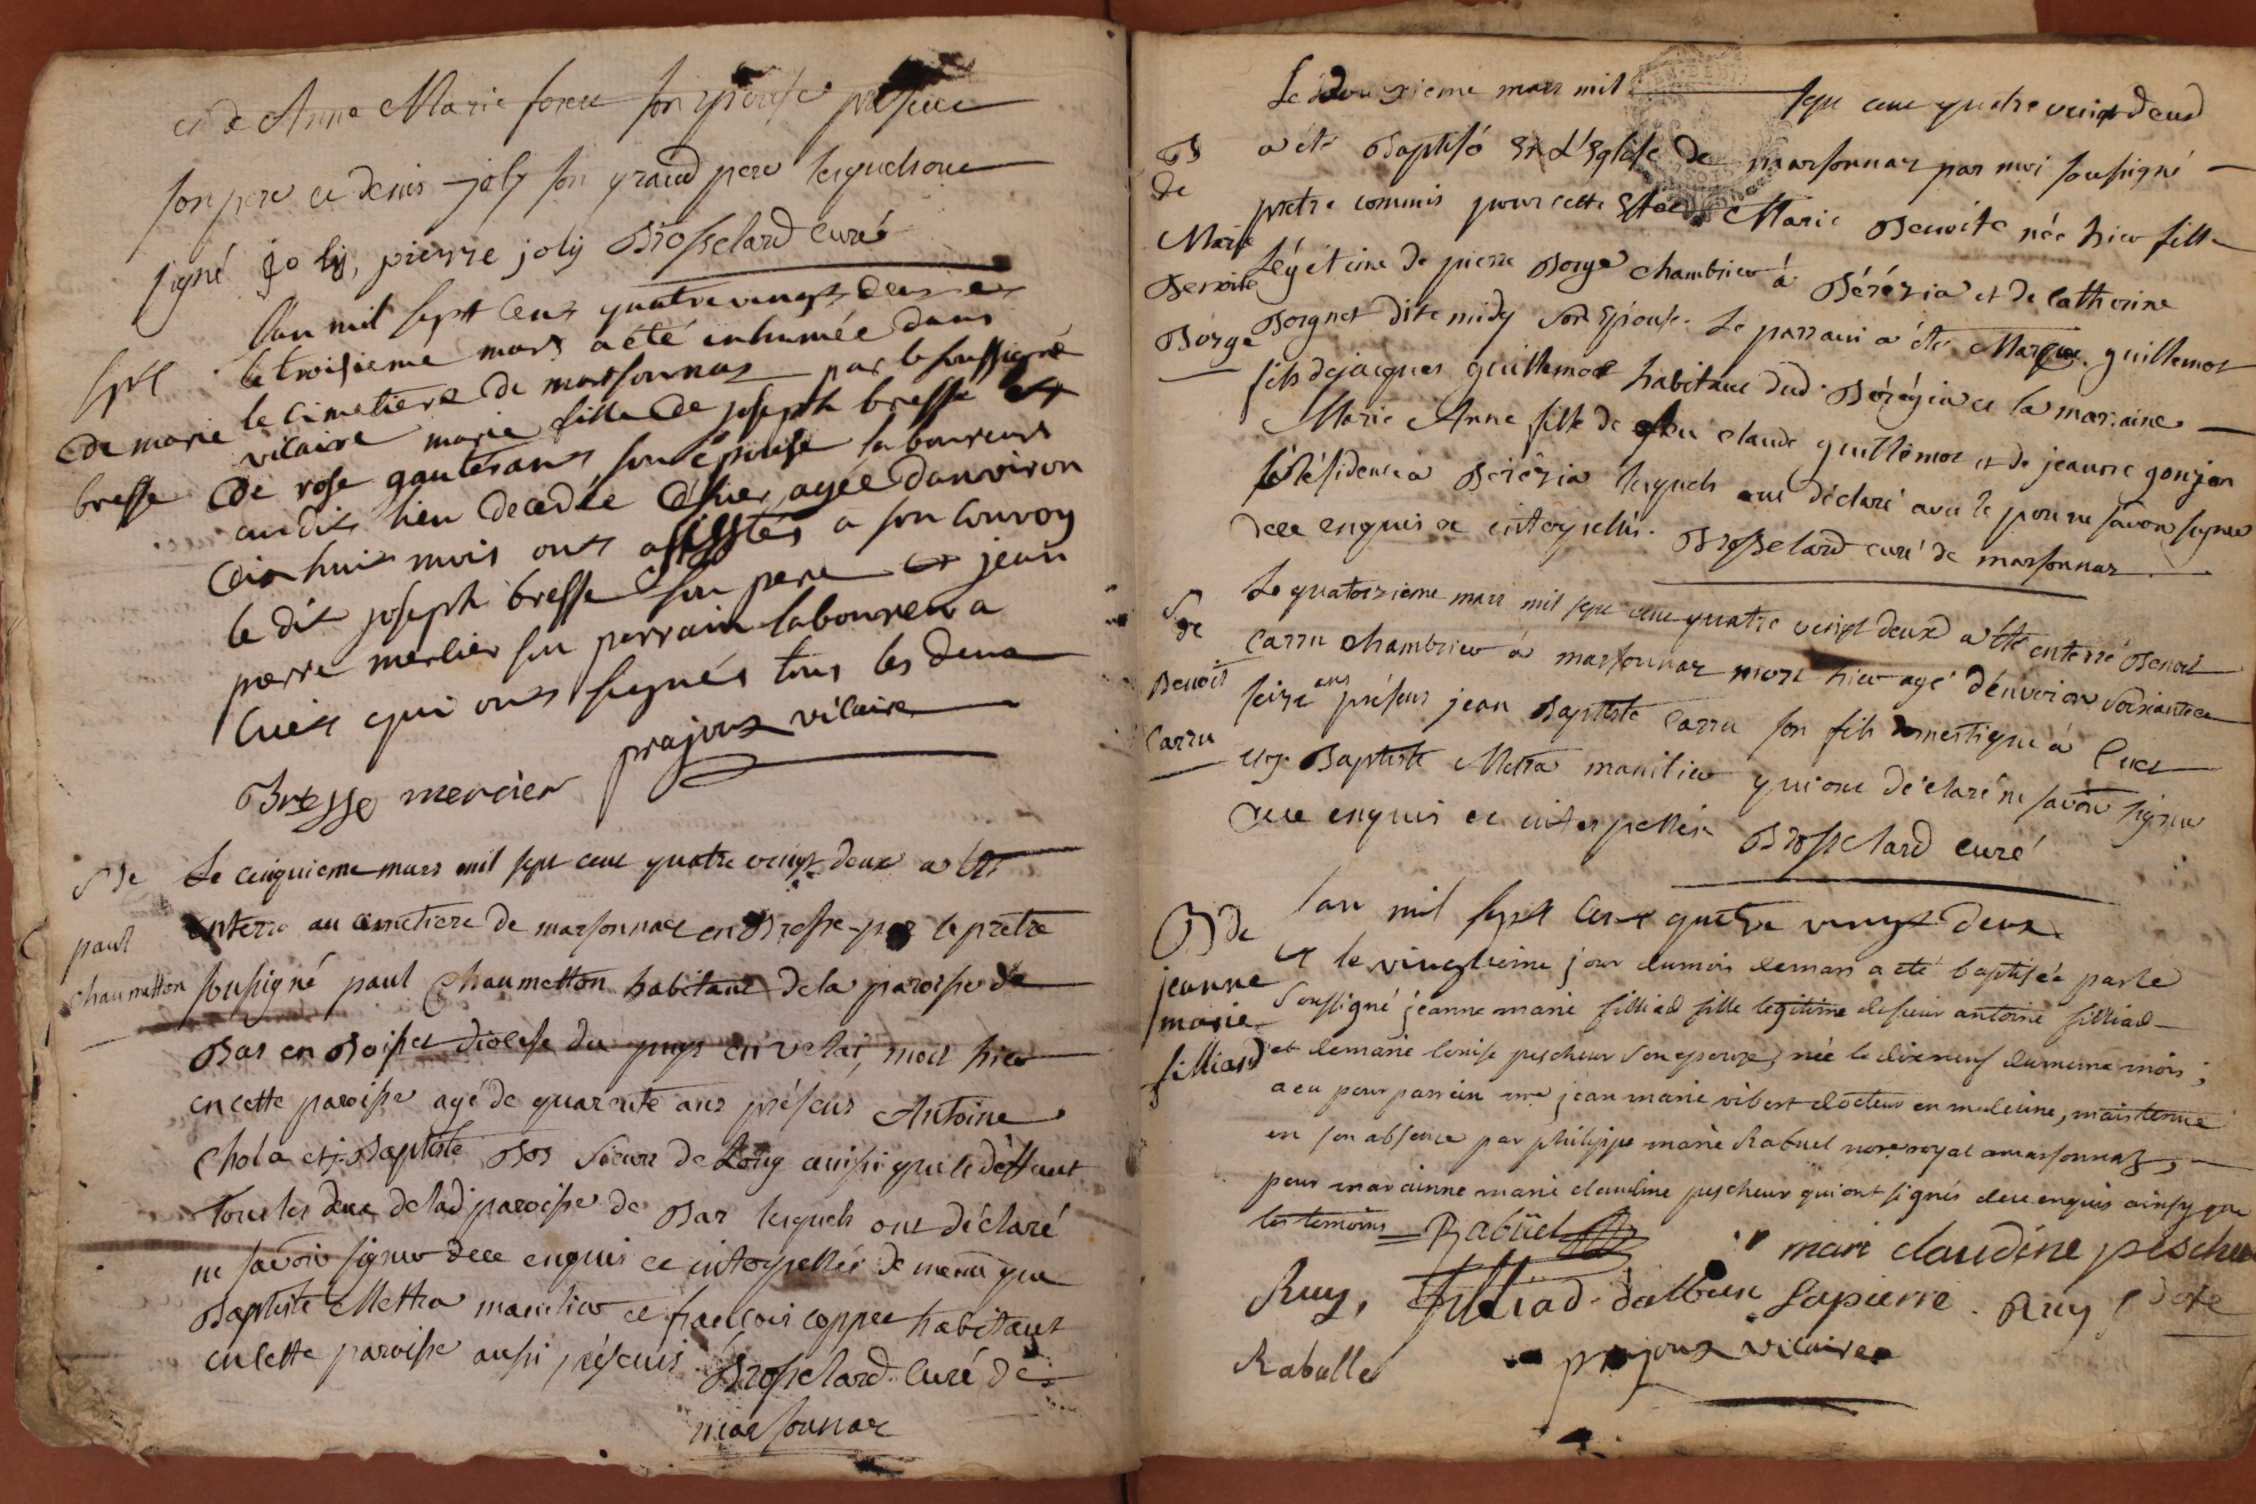 et de Anne Marie foreu son épouse présens
son pere et denis joly son grand pere lesquels ont
signé joly, pierre joly Brosselard curé
Spre
de marie
bresse
l'an mil sept cens quatre vingt deux et
le troisieme mars a été inhumée dans
le cimetiere de marsonnas par le soussigné
vicaire marie fille de joseph bresse et
de rose gautesans son épouse laboureurs
audit lieu decedée d'hier, agée danviron
dix huit mois ont assistés a son convoy
le dit joseph bresse son pere et jean
pierre mercier son parrain laboureur a
Cuet qui ont signés tous les deux
Bresse mercier prajoux vicaire
S de
paul
chaumetton
Le cinquieme mars mil sept cent quatre vingt deux a été
enterré au cimetiere de marsonnas en Bresse par le prêtre
sousigné paul Chaumetton habitant de la paroisse de
Bas en Boisset diocese du puys en velai, mort hier
en cette paroisse agé de quarente ans présens Antoine
Chola et j. Baptiste Bos sieurs de Long ainsi que le déffaut
tous les deux de lad. paroisse de Bas lesquels ont déclaré
ne savoir signer de ce enquis et interpellés de meme que
Baptiste Mettra manilier et françois coppet habitant
en cette paroisse aussi présens. Brosselard curé de
marsonnas
B
de
Marie
Benoite
Borge
Le douzieme mars mil sept cent quatre vingt deux
a été Baptisé En L'Eglise de marsonnas par moi sousigné
pretre commis pour cette Marie Benoite née hier fille
Légitime de pierre Borge chambrier à Béréziat et de Catherine
Borgnet dite midy son Epouse. Le parrain a été Marque guillemot
fils de jacques guillemot habitant dud. Béréziat et la marraine
Marie Anne fille de feu claude guillemot et de jeanne gonjon
résidente a Béréziat lesquels ont déclaré avec le pere ne savoir signer
de ce enquis et interpellés. Brosselard curé de marsonnas
S
de
Benoit
Carru
Le quatorzieme mars mil sept cent quatre vingt deux a été enterré Benoit
Carru chambrier à marsonnas mort hier agé d'environ soixante et
seize ans présens jean Baptiste Carru son fils domestique à Cuet
et j. Baptiste Mettra manilier qui ont déclaré ne savoir signer
de ce enquis et interpellés Brosselard curé
B de
jeanne
marie
filliard
l'an mil sept cent quatre vingt deux
et le vingtieme jour du mois de mars a eté baptisée par le
soussigné jeanne marie filliad fille legitime de sieur antoine filliad
et de marie louise pescheur son epouze, née le dix neuf du meme mois;
a eu pour parrain mre jean marie vibert docteur en medecine, mais tenue
en son absence par philippe marie Rabuel nore royal a marsonnas,
pour marainne marie claudine pescheur qui ont signés de ce enquis ainsy que
les temoins Rabüel
mari claudine pescheu
Ruy, Filliad. dalban Lapierre. Ruy
Raballe prajoux vicaire